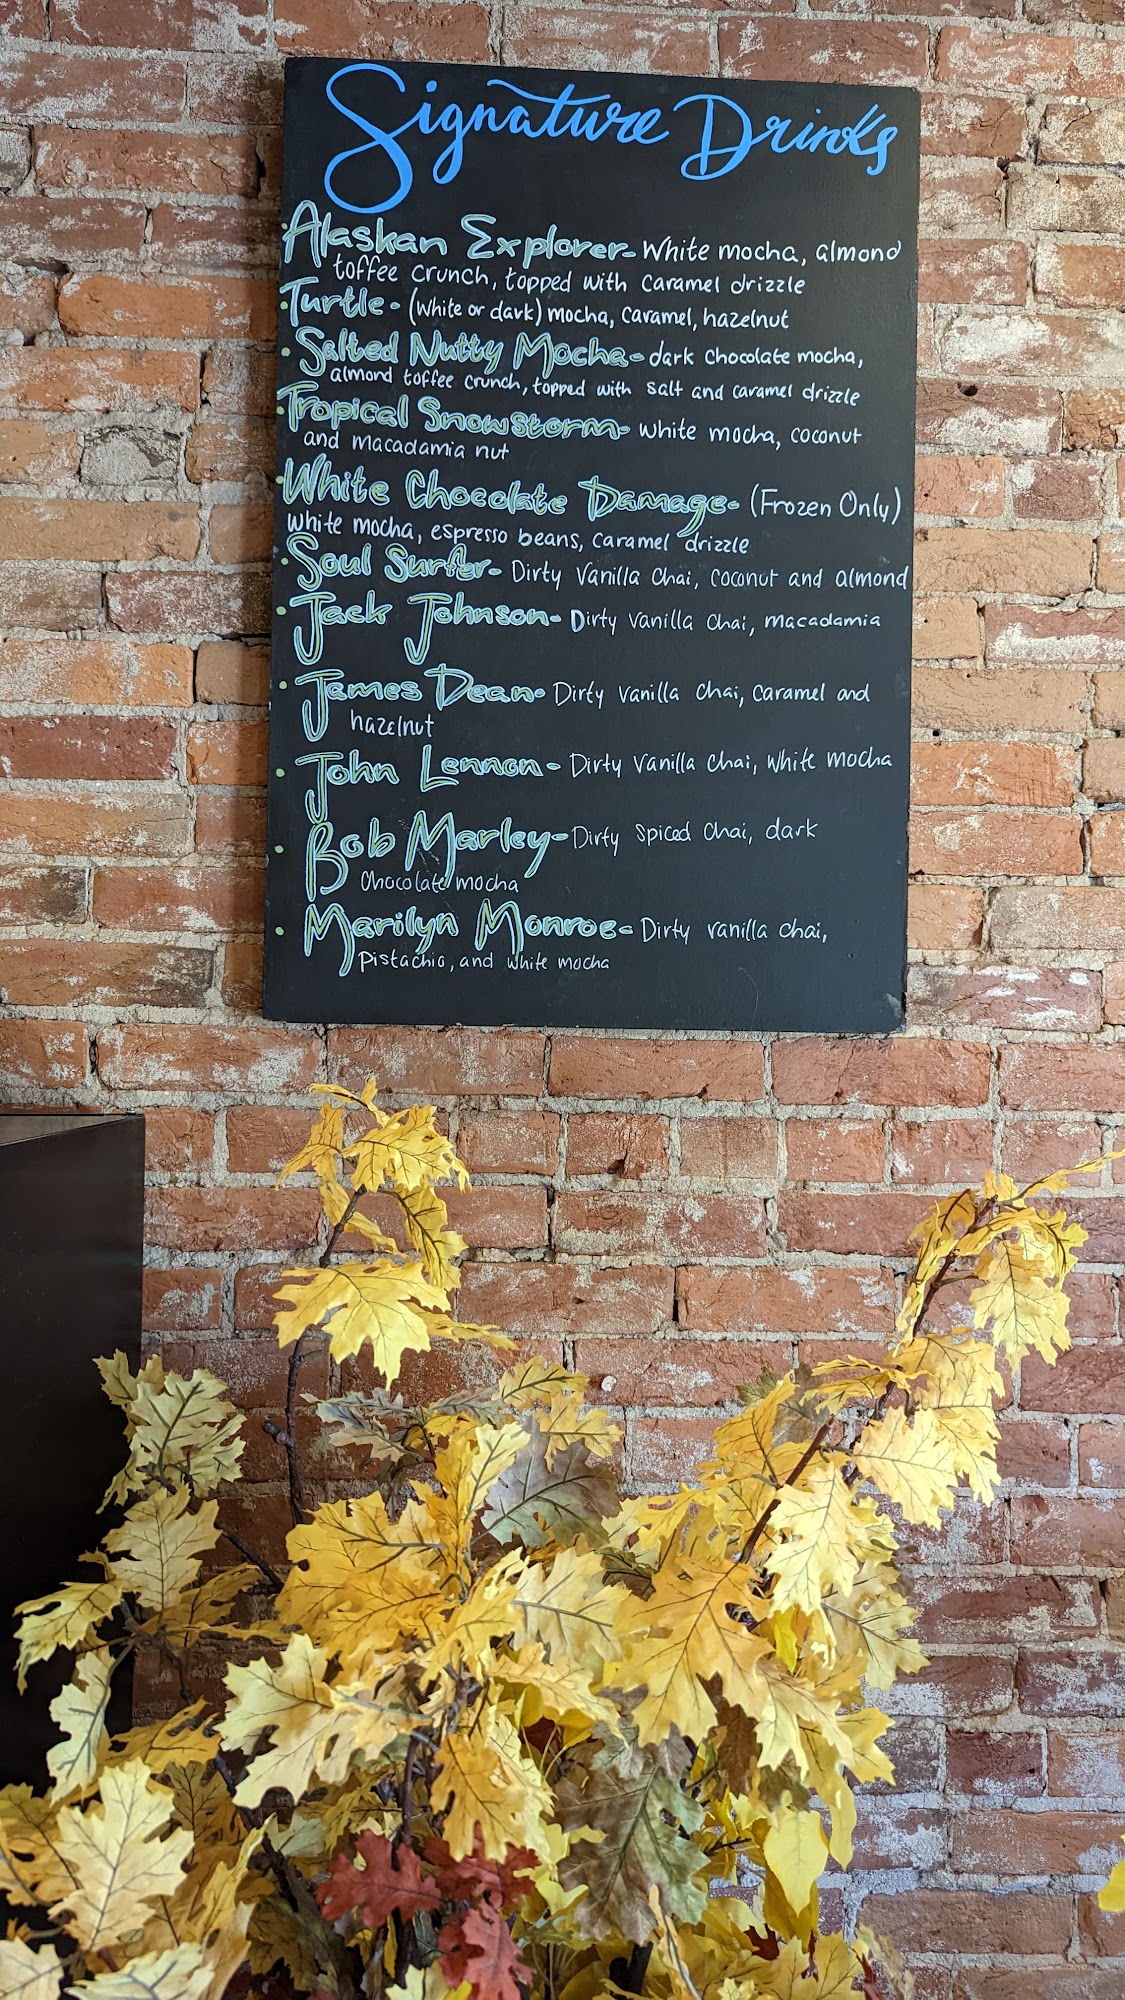 Signature Drinks
• Alaskan Explorer- White mocha, almond
toffee crunch, topped with caramel drizzle
• Turtle- (white or dark) mocha, caramel, hazelnut
• Salted Nutty Mocha- dark chocolate mocha,
almond toffee crunch, topped with salt and caramel drizzle
• Tropical Snowstorm- white mocha, coconut
and macadamia nut
• White Chocolate Damage- (Frozen Only)
white mocha, espresso beans, caramel drizzle
• Soul Surfer- Dirty Vanilla Chai, coconut and almond
• Jack Johnson- Dirty vanilla chai, macadamia
• James Dean- Dirty vanilla chai, caramel and
hazelnut
• John Lennon- Dirty vanilla chai, white mocha
• Bob Marley- Dirty spiced chai, dark
chocolate mocha
• Marilyn Monroe- Dirty vanilla chai,
pistachio, and white mocha